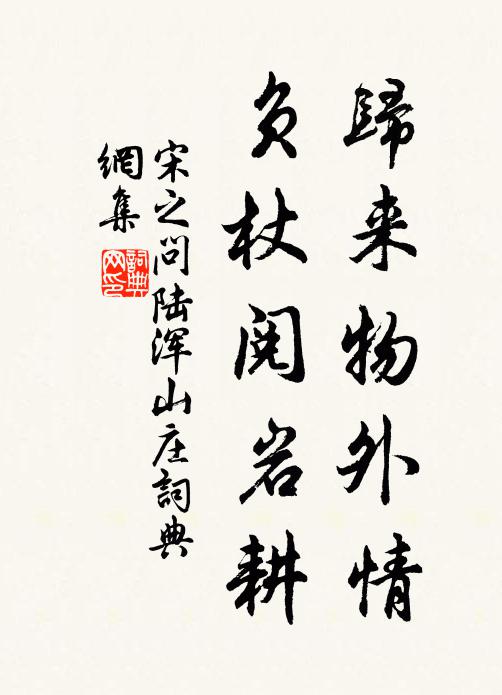 歸来物外情
负杖阅岩耕
宋之问陆浑山庄詞典
網集
詞典
网印